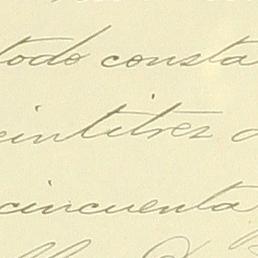 todo consta
eintitres d
cincuenta